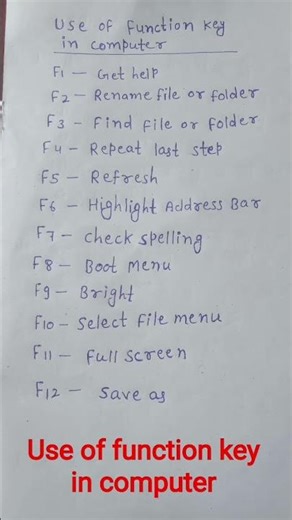 Use of function key
in computer
F1 – Get help
F2 – Rename file or folder
F3 – Find file or folder
F4 – Repeat last step
F5 – Refresh
F6 – Highlight Address Bar
F7 – check spelling
F8 – Boot Menu
F9 – Bright
F10 – Select File menu
F11 – Full Screen
F12 – Save as
Use of function key
in computer